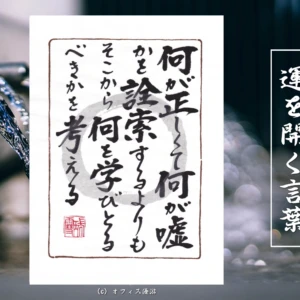 何が正しくて何が嘘
かを詮索するよりも
そこから何を学びとる
べきかを考える
運を開く言葉
(c) オフィス油沼